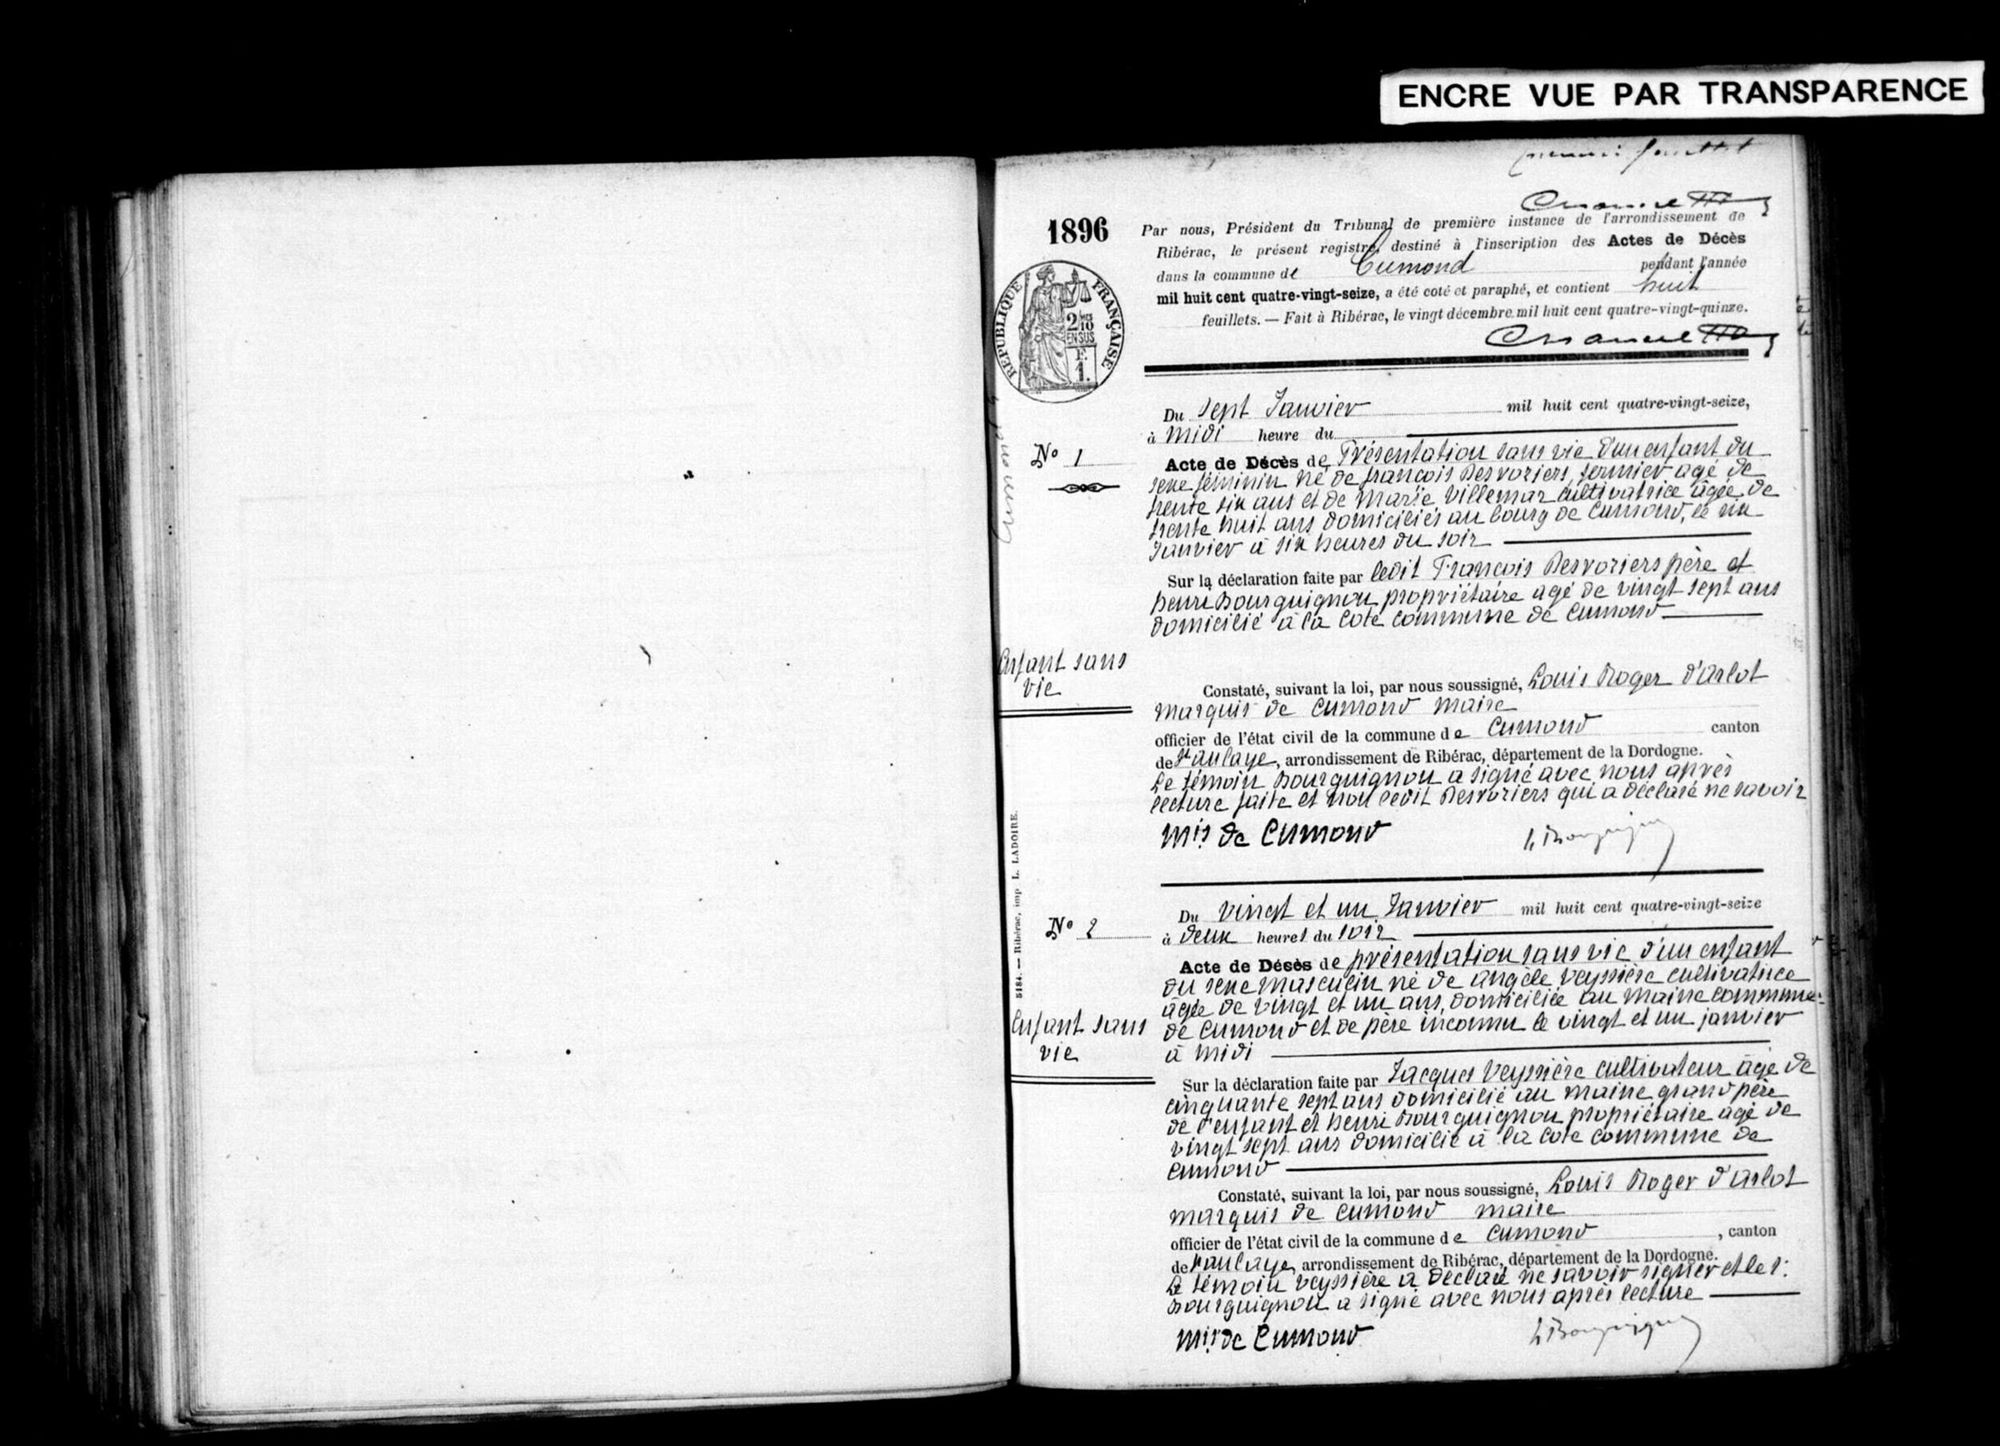 ENCRE VUE PAR TRANSPARENCE
premier feuillet
1896
Par nous, Président du Tribunal de première instance de l'arrondissement de
Ribérac, le présent registre, destiné à l'inscription des Actes de Décès
dans la commune de Cumond pendant l'année
mil huit cent quatre-vingt-seize, a été coté et paraphé, et contient huit
feuillets. — Fait à Ribérac, le vingt décembre mil huit cent quatre-vingt-quinze.
RÉPUBLIQUE FRANÇAISE
2/10
EN SUS
F.
1.
Du sept Janvier mil huit cent quatre-vingt-seize,
à midi heure du
No 1
Acte de Décès de Présentation sans vie d'un enfant du
sexe féminin né de françois Desvoriers, fermier agé de
trente six ans et de Marie Villemar cultivatrice âgée de
trente huit ans domiciliés au bourg de Cumond, le six
Janvier à six heures du soir
Sur la déclaration faite par ledit François Desvoriers père et
henri Bourguignon propriétaire agé de vingt sept ans
domicilié à la Cote commune de Cumond
Enfant sans
vie
Constaté, suivant la loi, par nous soussigné, Louis Roger d'Arlot
marquis de Cumond maire
officier de l'état civil de la commune de Cumond canton
de St aulaye, arrondissement de Ribérac, département de la Dordogne.
Le témoin Bourguignon a signé avec nous après
lecture faite et non ledit Desvoriers qui a déclaré ne savoir
Mis de Cumond
h Bourguignon
5184. — Ribérac, imp L. LADOIRE.
No 2
Du vingt et un Janvier mil huit cent quatre-vingt-seize
à deux heures du soir
Acte de Décès de présentation sans vie d'un enfant
du sexe masculin né de angèle Veyssière cultivatrice
âgée de vingt et un ans, domiciliée au maine commune
de Cumond et de père inconnu le vingt et un janvier
à midi
Enfant sans
vie
Sur la déclaration faite par Jacques Veyssière cultivateur âgé de
cinquante sept ans domicilié au maine grand père
de l'enfant et henri Bourguignon propriétaire agé de
vingt sept ans domicilié à la Cote commune de
Cumond
Constaté, suivant la loi, par nous soussigné, Louis Roger d'Arlot
marquis de Cumond maire
officier de l'état civil de la commune de Cumond, canton
de St aulaye, arrondissement de Ribérac, département de la Dordogne.
Le témoin Veyssière a déclaré ne savoir signer et le s.
Bourguignon a signé avec nous après lecture
Mis de Cumond
h Bourguignon